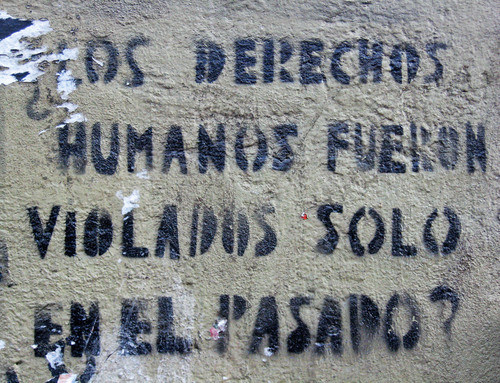 ¿LOS DERECHOS
HUMANOS FUERON
VIOLADOS SOLO
EN EL PASADO?